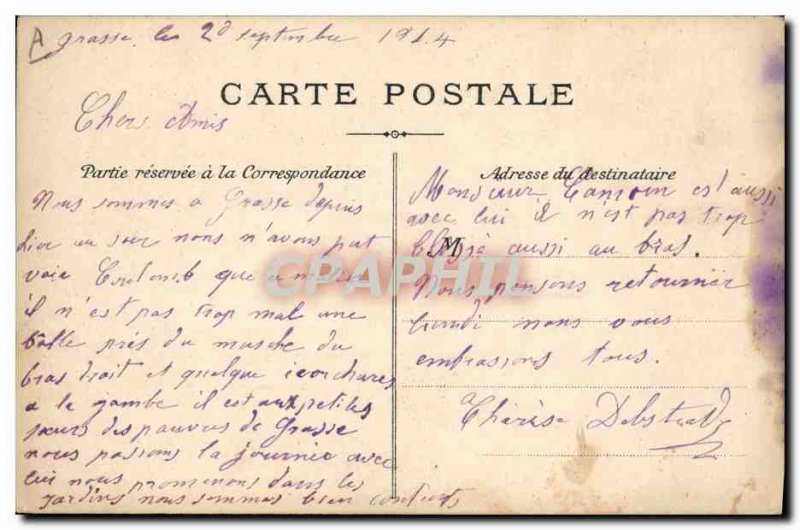 A
Grasse le 20 septembre 1914
CARTE POSTALE
Chers Amis
Partie réservée à la Correspondance
Nous sommes a Grasse depuis
hier au soir nous n'avons put
voir Coulomb que a midi
il n'est pas trop mal une
balle près du muscle du
bras droit et quelque ecorchares
a la jambe il est aux petites
sœurs des pauvres de Grasse
nous passons la journée avec
lui nous promenons dans les
jardins nous sommes bien contents
Adresse du destinataire
Monsieur est aussi
avec lui il n'est pas trop
M
blessé aussi au bras.
Nous pensons retourner
lundi nous vous
embrassons tous.
Thérèse
CPAPHIL